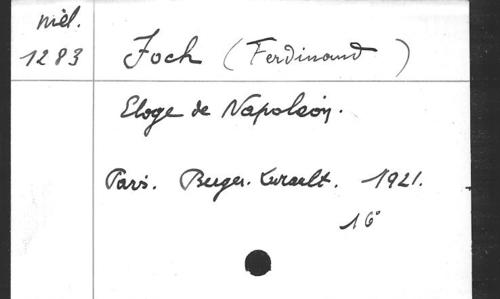 niél.
1283
Foch (Ferdinand)
Eloge de Napoléon.
Paris. Berger-Levrault. 1921.
16°